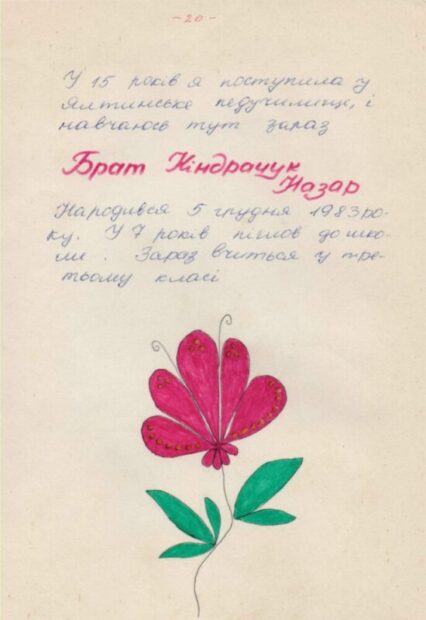 - 20 -
У 15 років я поступила у
Ялтинське педучилище, і
навчаюсь тут зараз
Брат Кіндрачук
Назар
Народився 5 грудня 1983 ро-
ку. У 7 років пішов до шко-
ли. Зараз вчиться у тре-
тьому класі